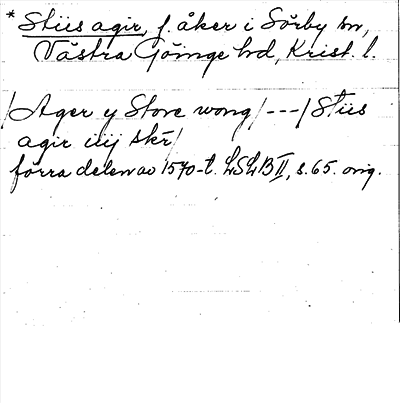 * Stiis agir, f. åker i Sörby sn,
Västra Göinge hd, Krist. l.
/Ager y Store wong/ --- / Stiis
agir iiij skr/
förra delen av 1570-t. LSLB II, s. 65. orig.